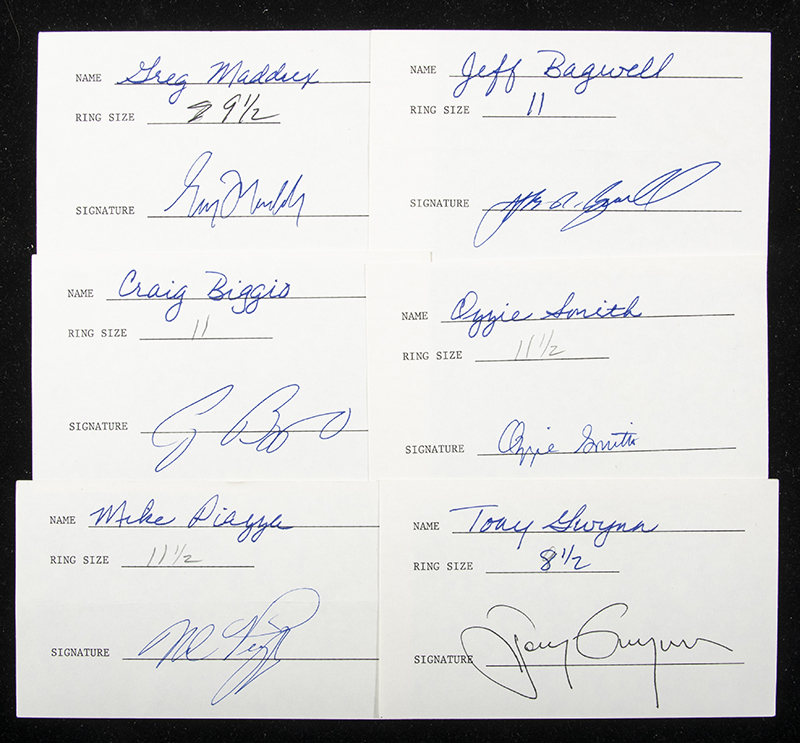 NAME Greg Maddux
RING SIZE 9 1/2
SIGNATURE Greg Maddux
NAME Jeff Bagwell
RING SIZE 11
SIGNATURE Jeff Bagwell
NAME Craig Biggio
RING SIZE 11
SIGNATURE Craig Biggio
NAME Ozzie Smith
RING SIZE 11 1/2
SIGNATURE Ozzie Smith
NAME Mike Piazza
RING SIZE 11 1/2
SIGNATURE Mike Piazza
NAME Tony Gwynn
RING SIZE 8 1/2
SIGNATURE Tony Gwynn